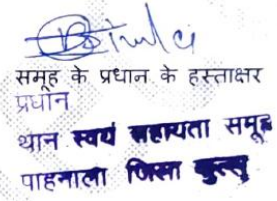 समूह के प्रधान के हस्ताक्षर
प्रधान
थान स्वयं सहायता समूह
पाहनाला जिला कुल्लू